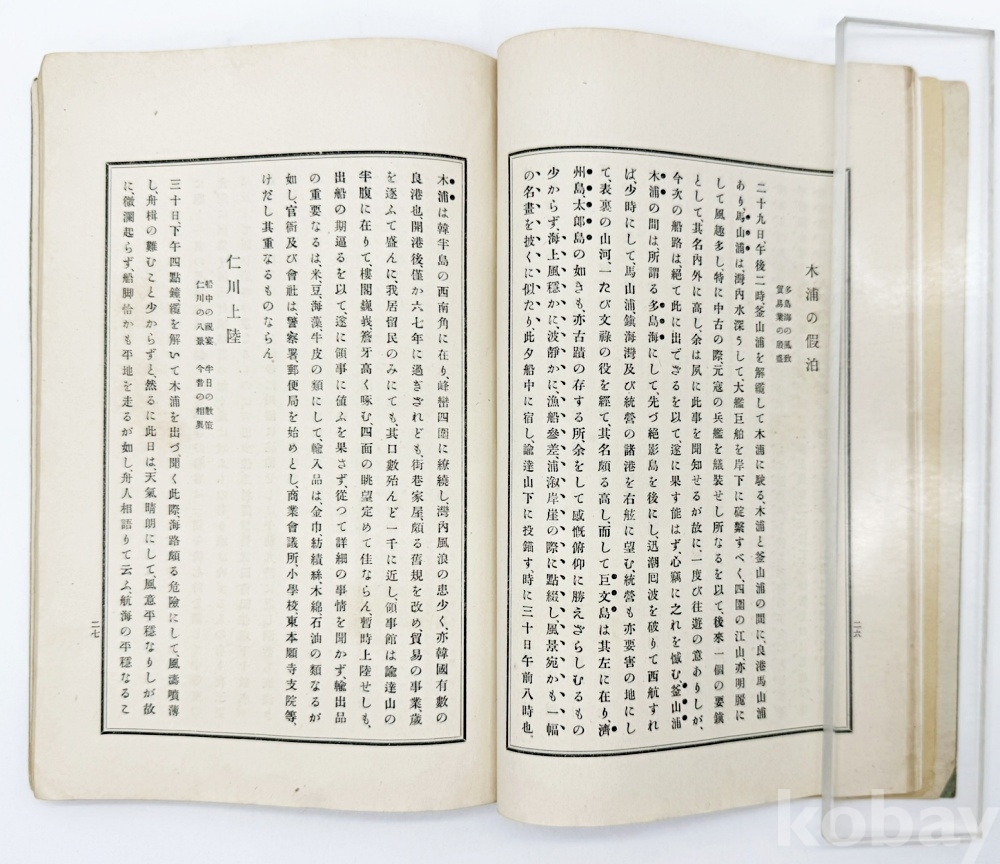 木浦の假泊
多島海の風致
貿易業の殷盛
二十九日、午後二時、釜山浦を解纜して木浦に駛る、木浦と釜山浦の間に、良港馬山浦
あり、馬山浦は、灣內水深うして、大艦巨舶を岸下に碇繫すべく、四圍の江山、亦明麗に
して風趣多し、特に中古の際、元寇の兵艦を艤裝せし所なるを以て、後來一個の要鎭
として、其名內外に高し、余は夙に此事を聞知せるが故に、一度び往遊の意ありしが、
今次の船路は絕て此に出でざるを以て、遂に果す能はず、心竊に之れを憾む、釜山浦
木浦の間は、所謂る多島海にして、先づ絕影島を後にし、迅潮囘波を破りて西航すれ
ば、少時にして、馬山浦、鎭海灣及び統營の諸港を右舷に望む、統營も亦要害の地にし
て、表裏の山河、一たび文祿の役を經て、其名頗る高し、而して巨文島は其左に在り、濟
州島、太郎島の如きも、亦古蹟の存する所、余をして感慨俯仰に勝えざらしむるもの
少からず、海上風穩かに、波靜かに、漁船參差、浦漵岸崖の際に點綴し、風景宛かも一幅
の名畫を披くに似たり、此夕船中に宿し、諭達山下に投錨す、時に三十日午前八時也、
二六
木浦は韓半島の西南角に在り、峰巒四圍に繚繞し、灣內風浪の患少く、亦韓國有數の
良港也、開港後、僅か六七年に過ぎざれども、街巷家屋、頗る舊規を改め、貿易の事業、歲
を逐ふて盛んに、我居留民のみにても、其口數殆んど一千に近し、領事館は諭達山の
半腹に在りて、樓閣巍峩、簷牙高く啄む、四面の眺望定めて佳ならん、暫時上陸せしも、
出船の期逼るを以て、遂に領事に値ふを果さず、從つて詳細の事情を聞かず、輸出品
の重要なるは、米豆、海藻、牛皮の類にして、輸入品は、金巾紡績絲、木綿、石油の類なるが
如し、官衙及び會社は、警察署、郵便局を始めとし、商業會議所、小學校、東本願寺支院等、
けだし其重なるものならん、
仁川上陸
船中の祝宴 半日の散策
仁川の八景 今昔の相異
三十日下午四點鐘、纜を解いて木浦を出づ、聞く此際、海路頗る危險にして、風濤噴薄
し、舟楫の難むこと少からずと、然るに此日は、天氣晴朗にして、風意平穩なりしが故
に、微瀾起らず、船脚恰かも平地を走るが如し、舟人相語りて云ふ、航海の平穩なるこ
二七
kobay